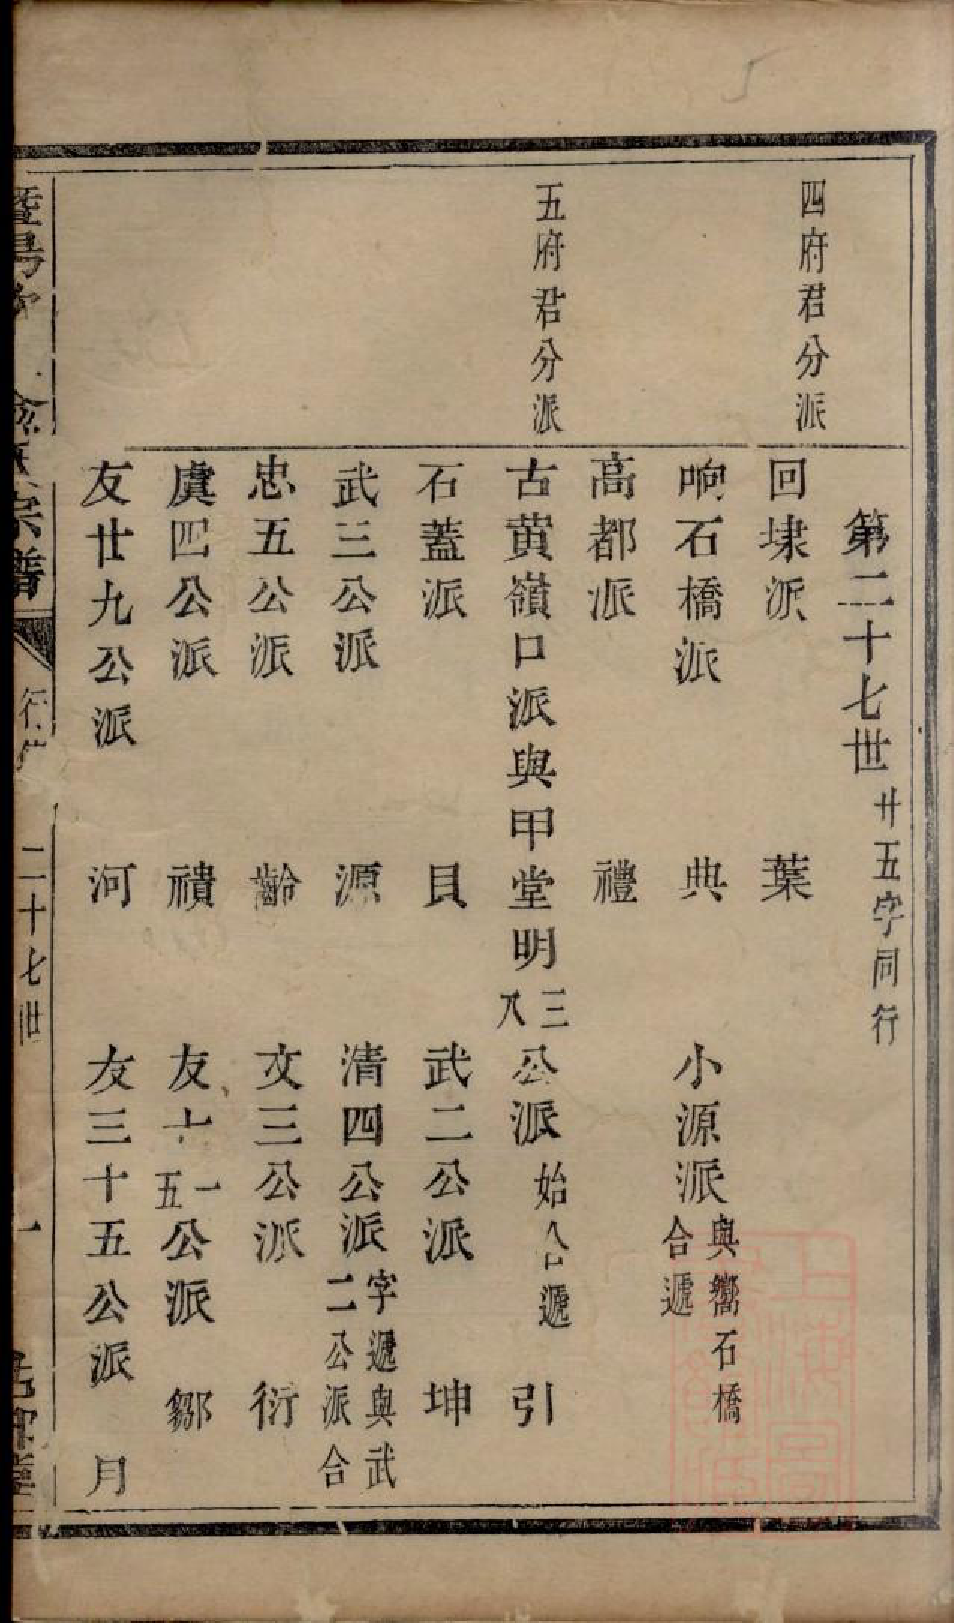 四府君分派
第二十七世 廿五字同行
回埭派 葉
响石橋派 典 小源派 與嚮石橋合遞
高都派 禮
五府君分派
古黄嶺口派與甲堂明三八公派 始合遞 引
石蓋派 貝 武二公派 坤
武三公派 源 清四公派 字遞與武二公派合
忠五公派 齡 文三公派 衍
虞四公派 禶 友十一五公派 鄒
友廿九公派 河 友三十五公派 月
宗譜 行 二十七世 一